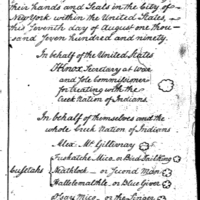 their hands and Seals in the City of
New York within the United States,
this Seventh day of August one thou-
sand Seven hundred and ninety.
In behalf of the United States
HKnox Secretary at War
and Sole Commissioner
for treating with the
Creek Nation of Indians
In behalf of themselves and the
whole Creek Nation of Indians
Alex: McGillivray
Fuskatche Mico or Bird Tail King
Cusetahs
Neathlock or Second Man
Halletemalthle or Blue Giver
Opay Mico or the Singer